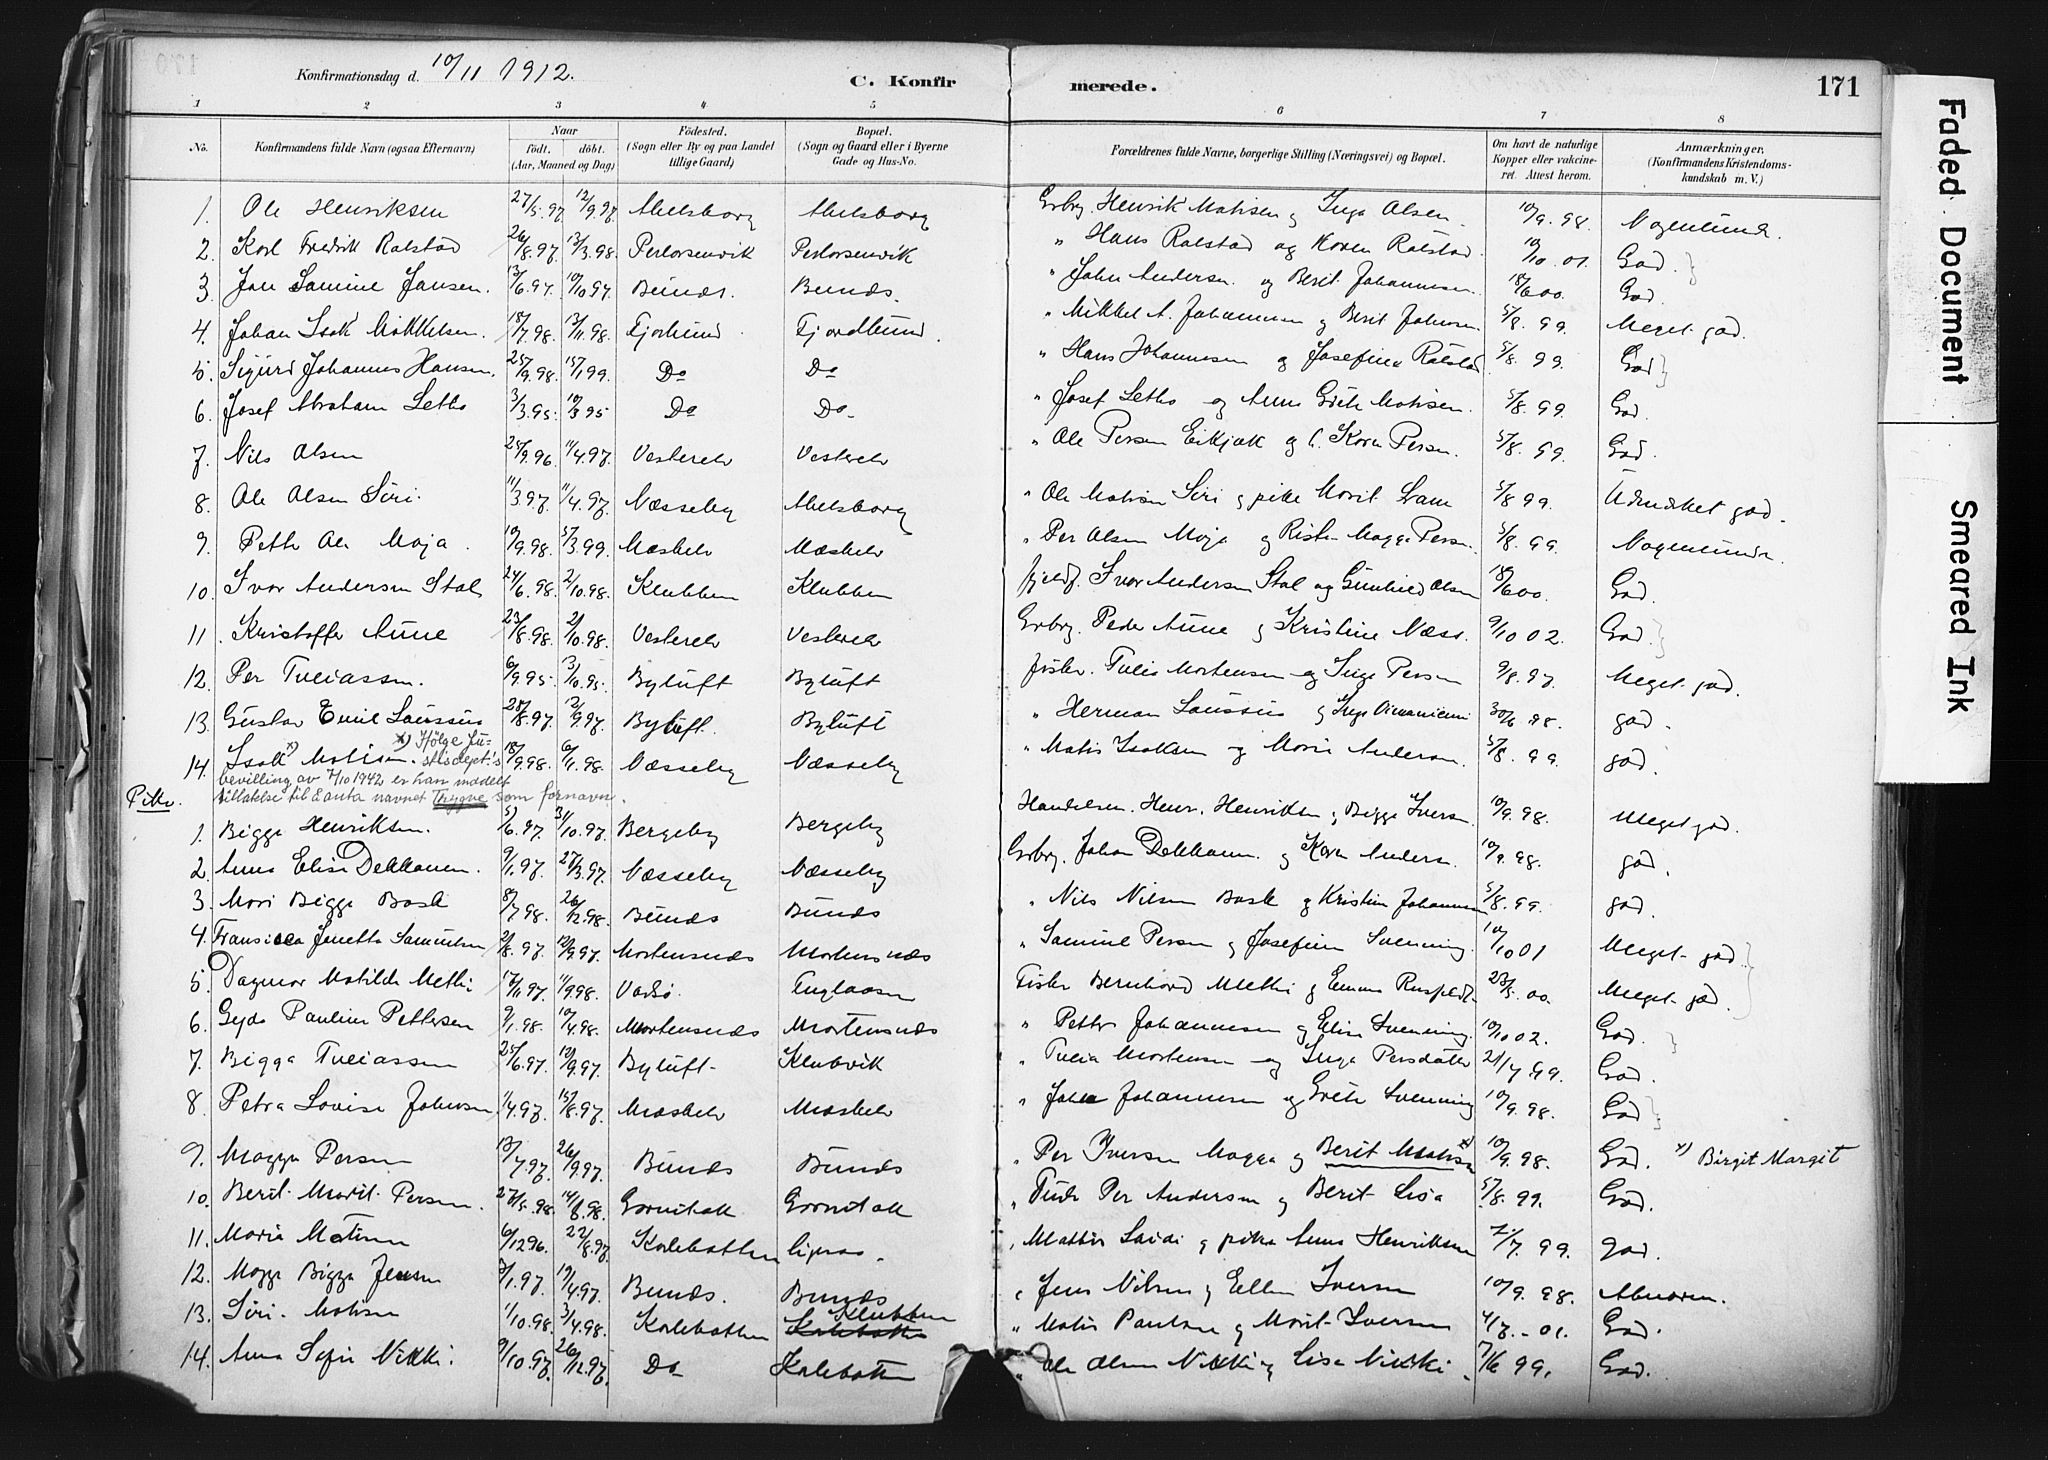 Konfirmationsdag d. 10/11 1912. C. Konfirmerede. 171
1 2 3 4 5 6 7 8
No. Konfirmandens fulde Navn (ogsaa Efternavn) Naar født. døbt. (Aar, Maaned og Dag) Fødested. (Sogn eller By og paa Landet tillige Gaard) Bopæl. (Sogn og Gaard eller i Byerne Gade og Hus-No. Forældrenes fulde Navne, borgerlige Stilling (Næringsvei) og Bopæl. Om havt de naturlige Kopper eller vakcineret. Attest herom. Anmærkninger. (Konfirmandens Kristendomskundskab m. V.)
1. Ole Henriksen 27/5.97. 12/9.97. Abelsborg Abelsborg Grbrg. Henrik Matisen og Inga Olsen. 10/9.98. Nogenlunde.
2. Karl Fredrik Ralstad 26/8.97. 13/3.98. Perlorsenvik Perlorsenvik " Hans Ralstad og Karen Ralstad. 10/10.01. God.
3. Jon Samine Jansen. 13/6.97. 10/10 97. Bunds. Bunds. " John Andersen og Berit Johannesen. 18/6 00. God.
4. Johan Isak Mikkelsen. 18/7.98. 13/11.98. Fjorbund Fjordbund. " Mikkel A. Johannesen og Berit Johnsen. 5/8. 99. Meget god.
5. Sigurd Johannes Hansen. 25/9.98. 15/1 99. Do Do " Hans Johannesen og Josefine Ralstad 5/8. 99. God
6. Josef Abraham Letho 3/3.95. 10/3 95 Do Do " Josef Letho og Anna Grete Matisen. 5/8. 99. God.
7. Nils Olsen 25/9.96. 11/4.97. Vesterelv Vesterelv " Ole Persen Eikjok og Karen Persen. 5/8. 99. God.
8. Ole Olsen Siri. 11/3.97. 11/4.97. Næsseby Abelsborg " Ole Matisen Siri og pike Marit 5/8 99. Udmerket god.
9. Petter Ole Moja. 10/9.98. 5/3.99. Mæskelv Mæskelv " Per Olsen Moja og Risten Magga Persen. 5/8. 99. Nogenlunde
10. Ivar Andersen Stal 24/6.98. 2/10.98. Klubben Klubben fjeldf. Ivar Andersen Stal og Gunhild Olsen 18/6 00. God.
11. Kristoffer Aune 23/8.98. 2/10.98. Vesterelv Vesterelv Grbrg. Peder Aune og Kristine Næss. 9/10 02. God.
12. Per Tuliassen. 6/9.95. 3/10.95. Byluft Byluft fisker. Tulis Mortensen og Inga Persen 9/8.97. Meget god.
13. Gustav Emil Laussus 28/8.97. 2/9.97. Byluft. Byluft " Herman Laussus og Inga 30/6.98. god.
14. Isak x) Matisen. 18/9.98. 6/11.98. Næsseby Næsseby " Matis Isaksen og Maria Andersen. 5/8. 99. god.
x) Ifølge Justisdept's bevilling av 7/10 1942 er han meddelt tillatelse til å anta navnet Trygve som fornavn.
Piker.
1. Bigga Henriksen. 5/6.97. 31/10.97. Bergeby Bergeby Handelsm. Henr. Henriksen og Bigga Iversen. 10/9.98. Meget god.
2. Anna Elise Dekkanen. 9/1.97. 27/3.97. Næsseby Næsseby Grbrg. Johan Dekkanen. og Karen Andersen. 10/9.98. god.
3. Mari Bigga Bask 8/7.98. 26/12.98. Bunds Bunds " Nils Nilsen Bask og Kristine Johannesen 5/8.99. god.
4. Fransisca Jenette Samuelsen 2/8.97. 12/9.97. Mortensnæs Mortensnæs " Samuel Persen og Josefine Svenning. 10/10 01 Meget god.
5. Dagmar Matilde Methi 17/11.97. 11/9.98. Vadsø. Fuglaasen Fisker Bernhard Methi og Emma 23/5.00. Meget god.
6. Gyda Pauline Pettersen 9/1.98. 10/4.98. Mortensnæs Mortensnæs " Petter Johannesen og Elise Svenning. 10/10 02. God.
7. Bigga Tuliassen 25/6.97. 12/9.97. Byluft Klubvik " Tulia Mortensen og Inga Persdatter 21/7.99. God.
8. Petra Lovise Johnsen 1/4.97. 15/8.97. Mæskelv Mæskelv " John Johannesen og Grete Svenning 10/9.98. God
9. Magga Persen 13/7.97. 26/9.97. Bunds Bunds " Per Iversen Magga og Berit Matisen x) 10/9.98. God. x) Birgit Margit
10. Berit Marit Persen. 27/5.98. 14/8.98. Gornitak Gornitak " Per Andersen og Berit Lisa 5/8.99. God.
11. Maria Matisen 6/12 96. 22/8.97. Karlebotten " Mattis Saidi og pike Anna Henriksen 2/7. 99. god.
12. Magga Bigga Jensen 3/1.97. 19/4.97. Bunds. Bunds " Jens Nilsen og Ellen Iversen 10/9.98.
13. Siri Matisen 1/10.98. 3/4.98. Karlebotten Klubben Karlebotten " Matis Paulsen og Marit Iversen 4/7.-01. God.
14. Anna Sofie Nikki. 9/10.97. 26/12.97. Do Karlebotten " Ole Olsen Nikki og Lisa Nikki. 7/6 99. God.
Faded Document
Smeared Ink